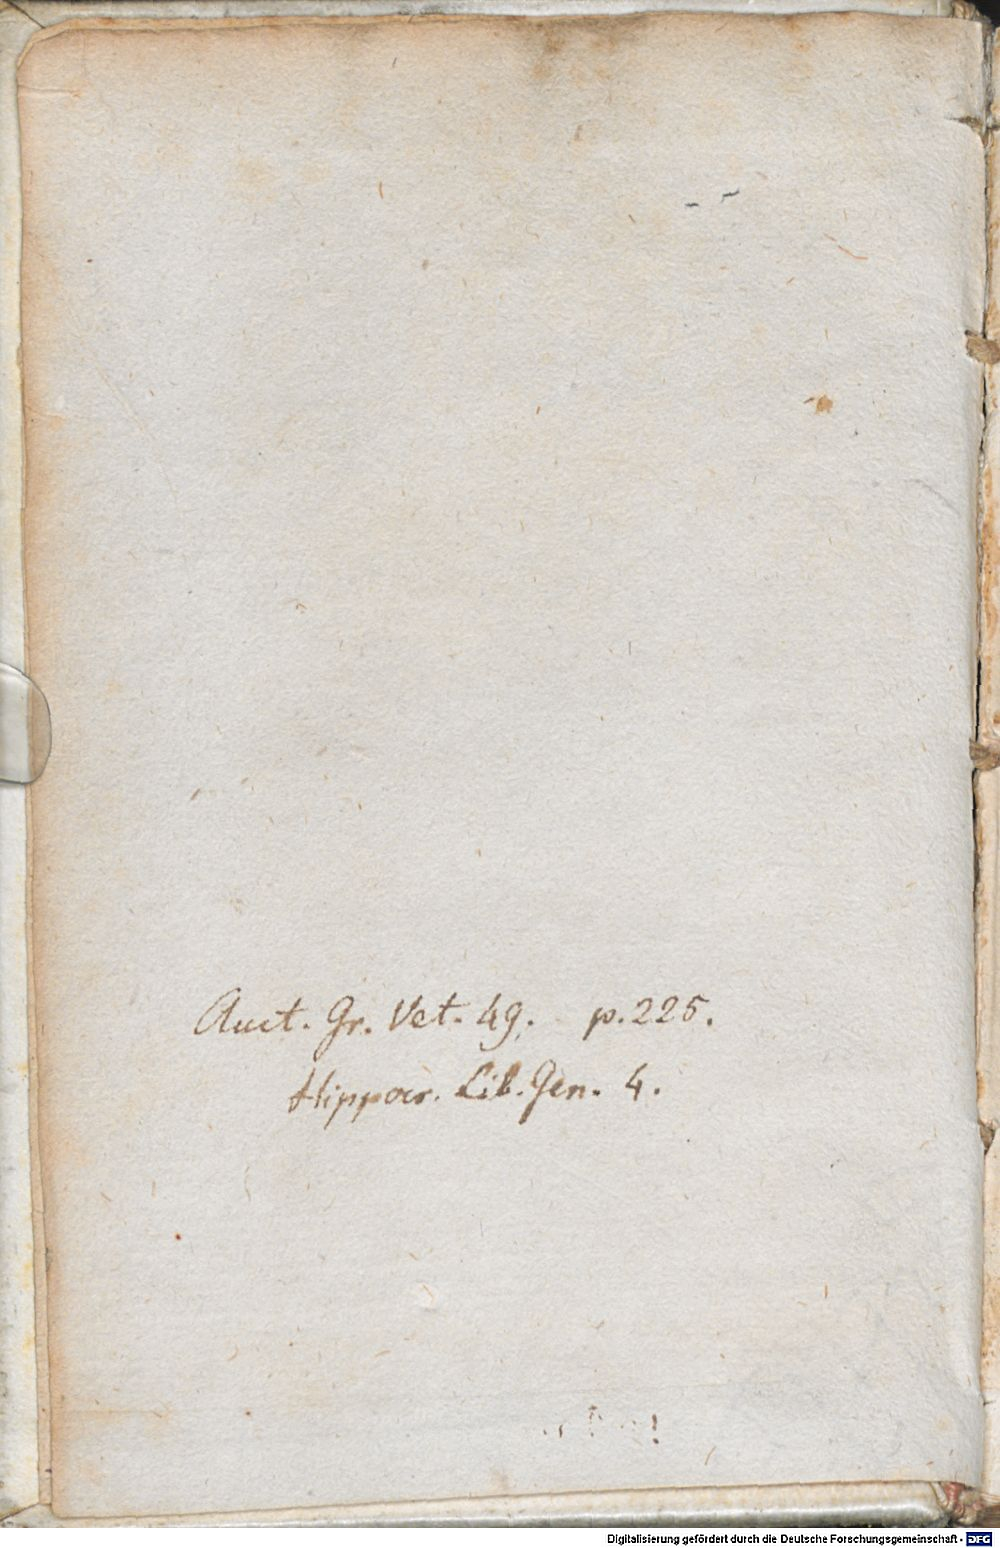 Auct. Gr. Vet. 49. p. 225.
Hippocr. Lib. Gen. 4.
Digitalisierung gefördert durch die Deutsche Forschungsgemeinschaft - DFG